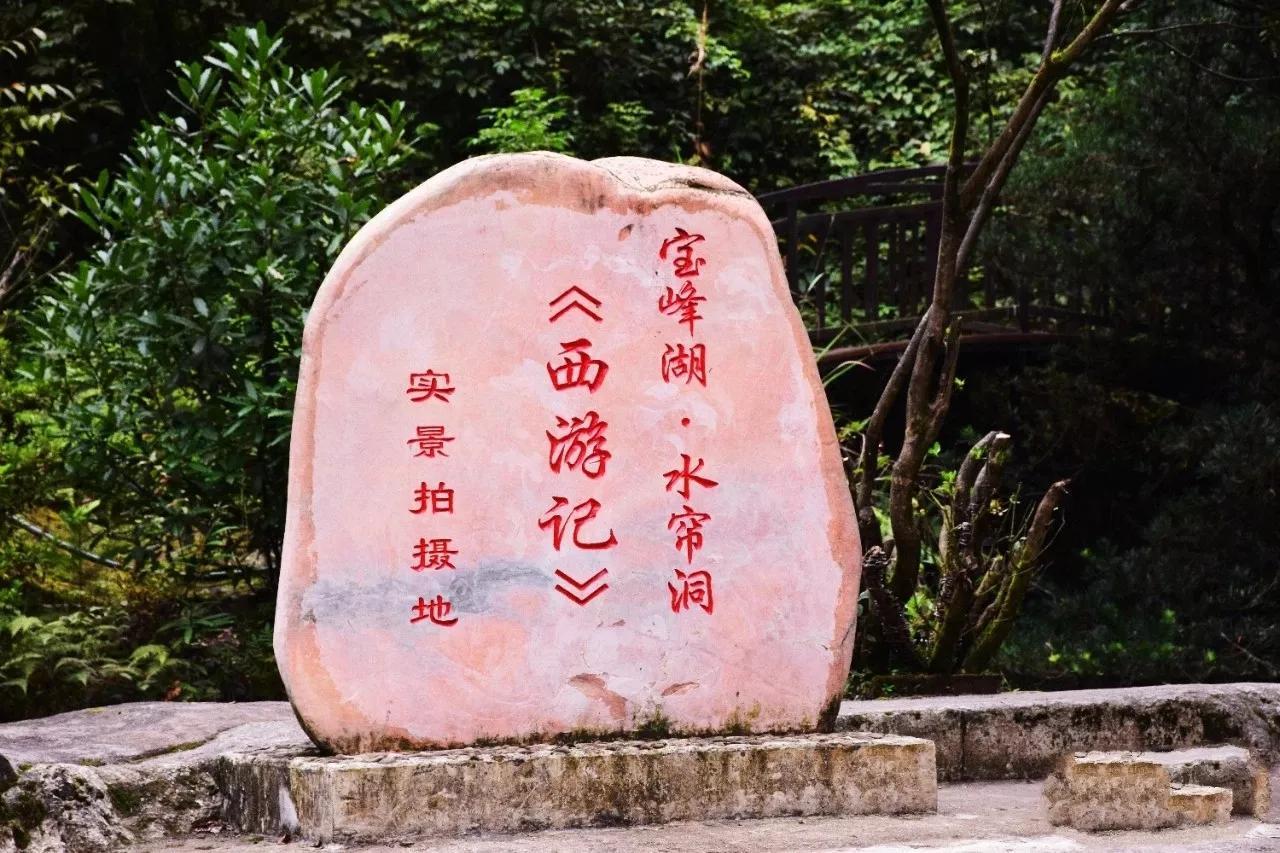 宝峰湖·水帘洞
《西游记》
实景拍摄地